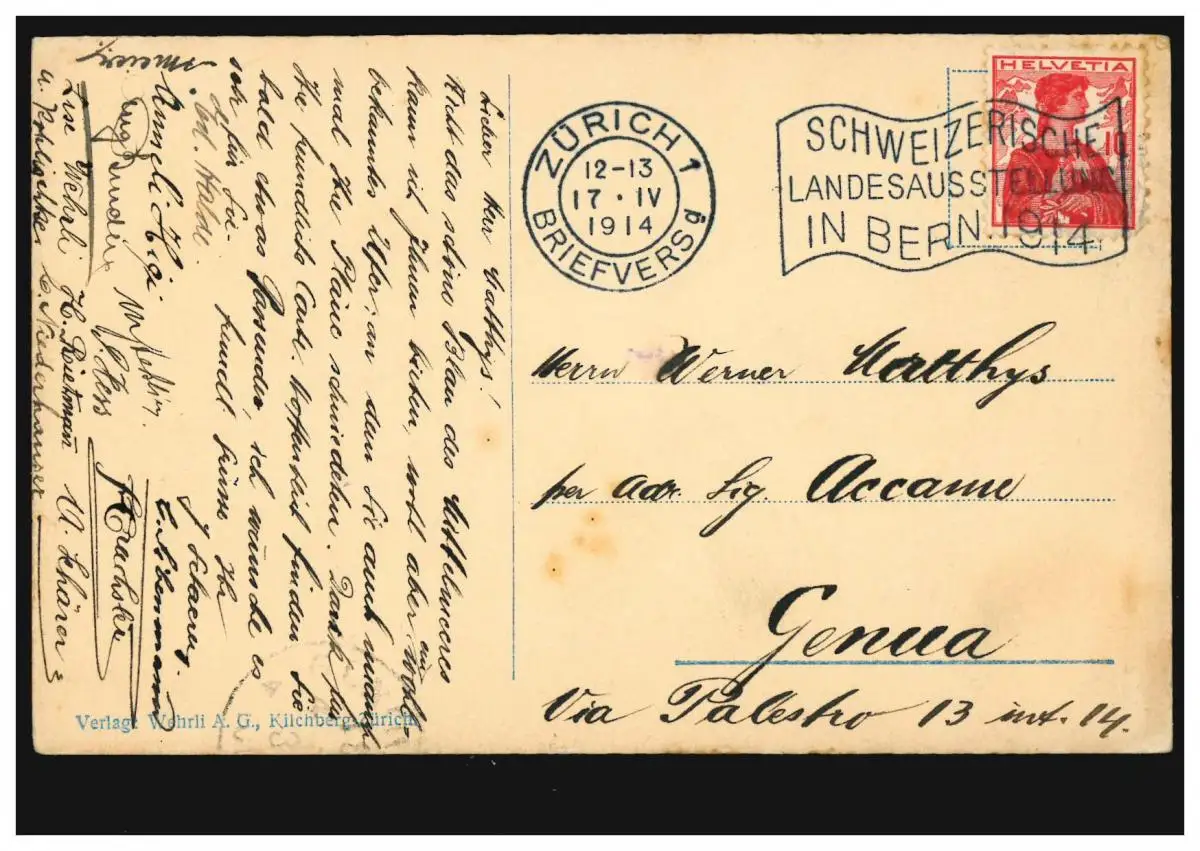 HELVETIA
10
ZÜRICH 1
12-13
17 · IV
1914
BRIEFVERSg
SCHWEIZERISCHE
LANDESAUSSTELLUNG
IN BERN. 1914.
Herrn Werner Matthys
per Adr. Sig. Accame
Genua
Via Palestro 13 int. 14.
Lieber Herr Matthys!
Nicht das schöne Blau des Mittelmeeres
kann ich Ihnen bieten, wohl aber ein wohl-
bekanntes Ufer, an dem Sie auch manch-
mal Ihre Pläne schmiedeten. Dank für
Ihre freundliche Carte. Hoffentlich finden Sie
bald etwas Passendes, ich wünsche es
sehr für Sie.
Ihr
Ed. Halde
Anneli Hégi.
Hess
Lise Wehrli
H. Rietmann
U. Schärer
C. Niederhauser
Verlag: Wehrli A. G., Kilchberg-Zürich